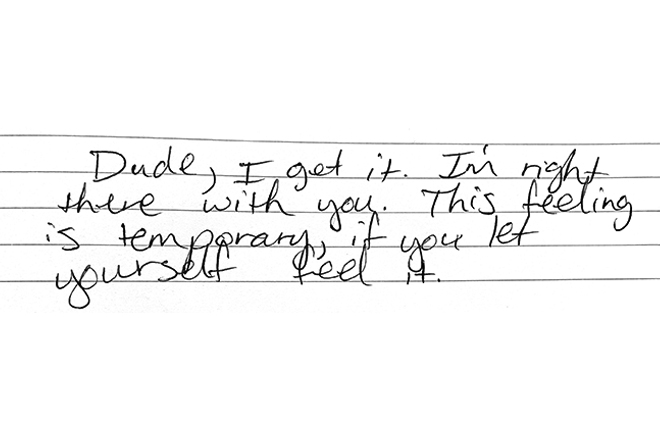 Dude, I get it. I'm right
there with you. This feeling
is temporary, if you let
yourself feel it.